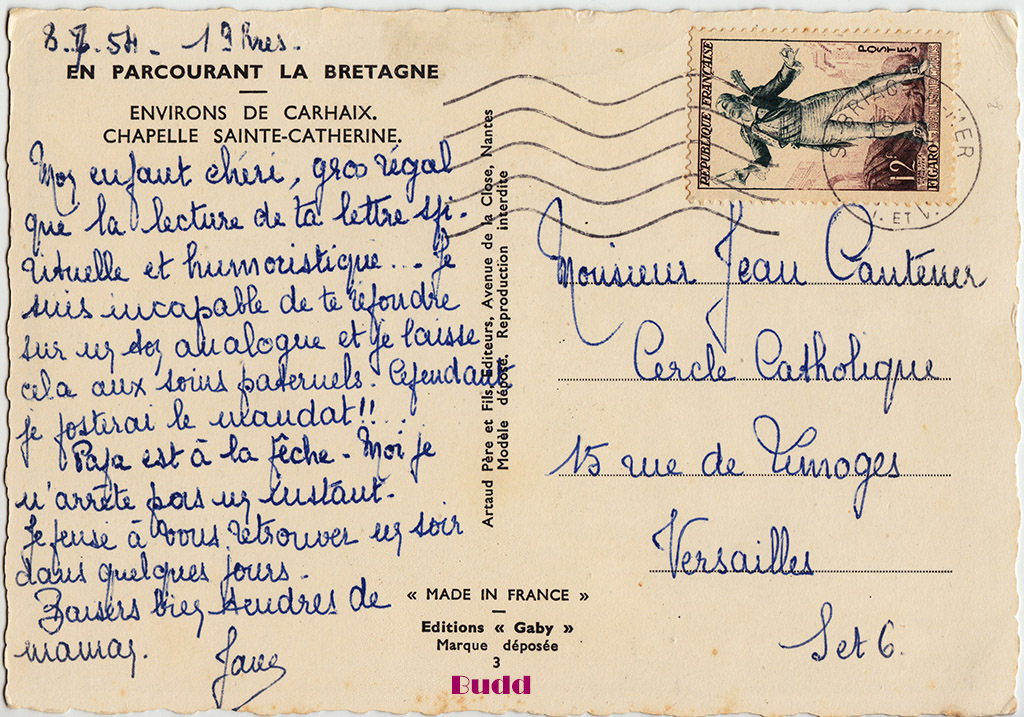 8.7.54 - 19 hres.
EN PARCOURANT LA BRETAGNE
ENVIRONS DE CARHAIX.
CHAPELLE SAINTE-CATHERINE.
Mon enfant chéri, gros régal
que la lecture de ta lettre spi-
rituelle et humoristique... Je
suis incapable de te répondre
sur un ton analogue et je laisse
cela aux soins paternels. Cependant
je posterai le mandat!!...
Papa est à la pêche - Moi je
n'arrête pas un instant.
Je pense à vous retrouver un soir
dans quelques jours.
Baisers bien tendres de
maman.
Artaud Père et Fils, Éditeurs, Avenue de la Close, Nantes
Modèle déposé. Reproduction interdite
« MADE IN FRANCE »
Editions « Gaby »
Marque déposée
3
Budd
RÉPUBLIQUE FRANÇAISE
POSTES
12F
FIGARO
MER
I. ET V.
Monsieur Jean
Cercle Catholique
15 rue de Limoges
Versailles
Set 6.